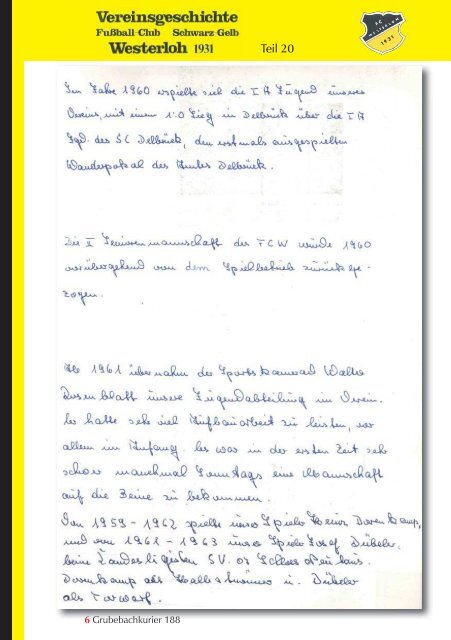 Vereinsgeschichte
Fußball-Club Schwarz-Gelb
Westerloh 1931 Teil 20
FC
WESTERLOH
1931
Im Jahre 1960 erspielte sich die I A Jugend unseres
Vereins, mit einem 1:0 Sieg in Delbrück über die I A
Jgd. des SC Delbrück, den erstmals ausgespielten
Wanderpokal des Amtes Delbrück.
Die II Seniorenmannschaft des FCW wurde 1960
vorübergehend von dem Spielbetrieb zurückge-
zogen.
Ab 1961 übernahm der Sportskamerad Walter
Rosenblatt unsere Jugendabteilung im Verein.
Er hatte sehr viel Aufbauarbeit zu leisten, vor
allem im Anfang. Es war in der ersten Zeit sehr
schwer manchmal Sonntags eine Mannschaft
auf die Beine zu bekommen.
Von 1959 - 1962 spielte unser Spieler Heinz Dorenkamp,
und von 1962 - 1963 unser Spieler Josef Dübeler.
beim Landesligisten SV. 07 Schloss Neuhaus.
Dorenkamp als Halbstürmer u. Dübeler
als Torwart.
6 Grubebachkurier 188